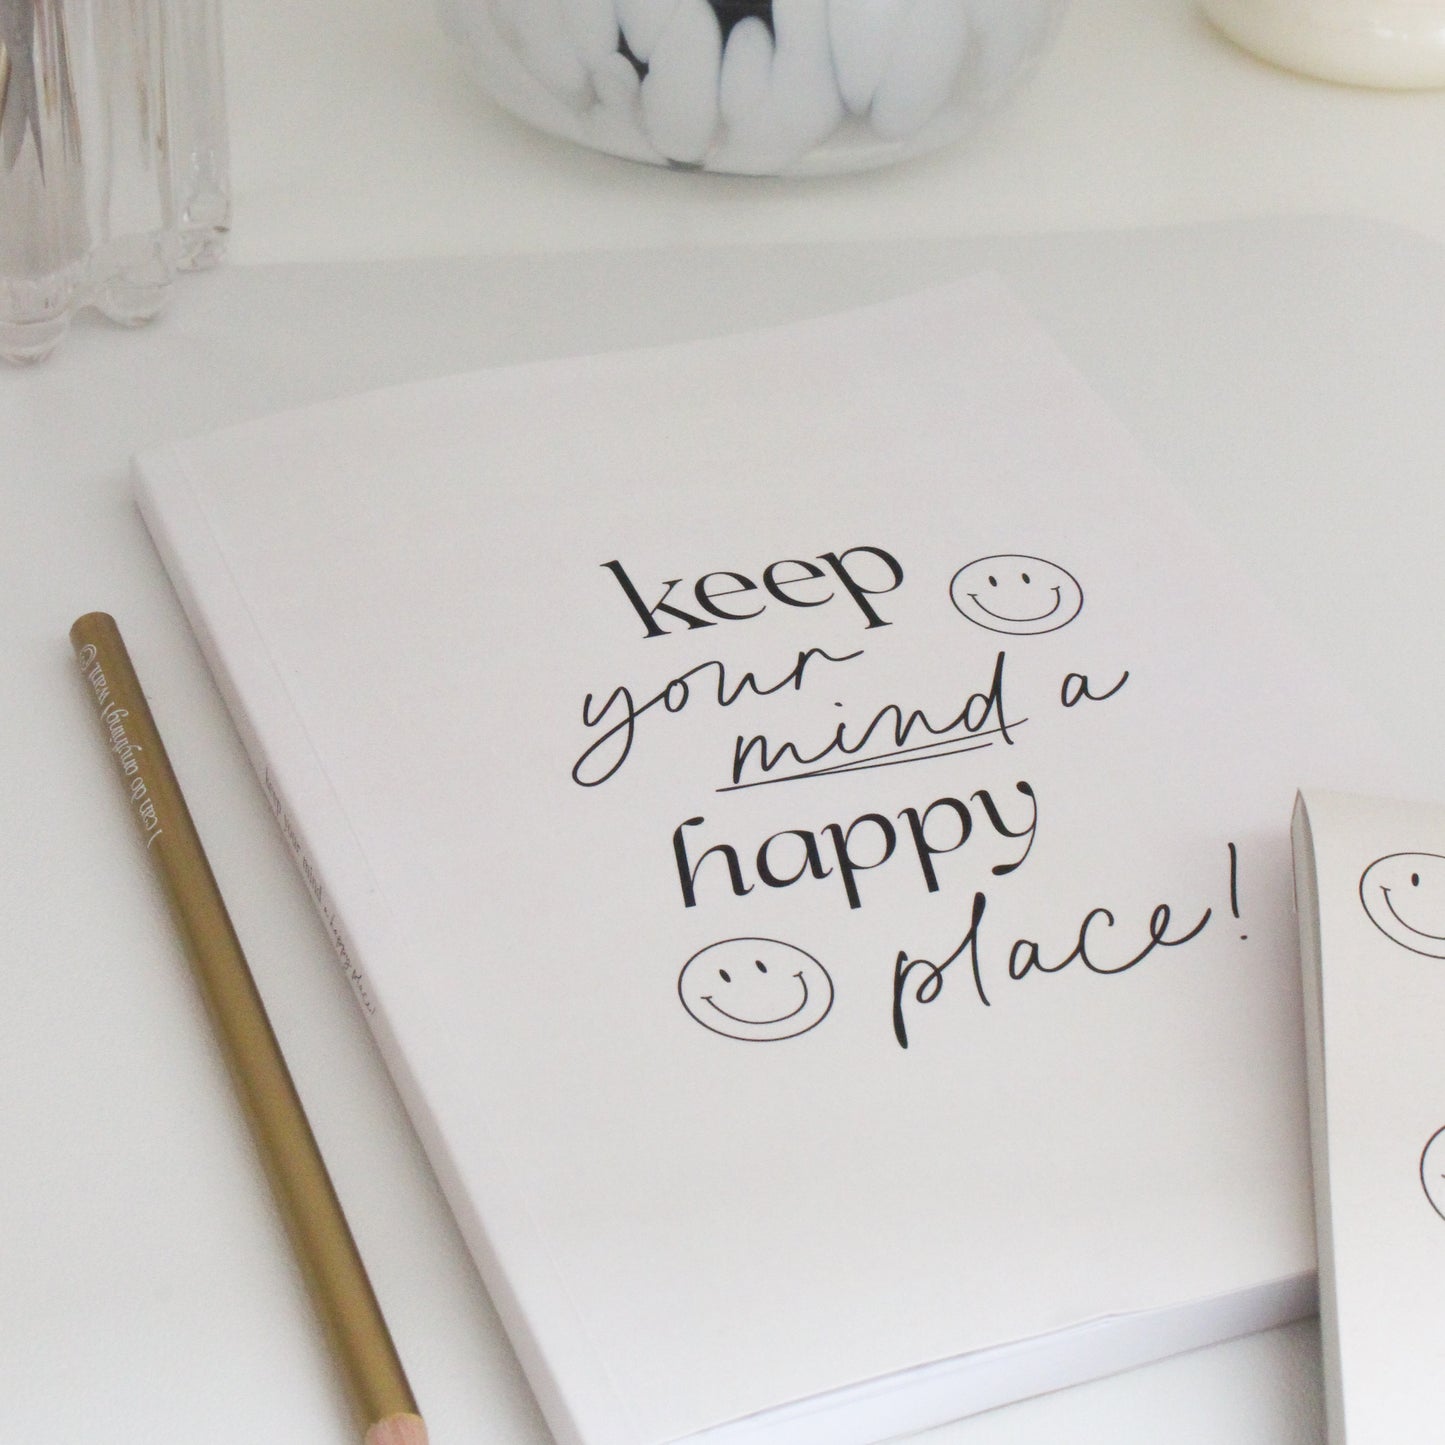 keep
your
mind a
happy
place!
keep your mind a happy place!
I can do anything I want.